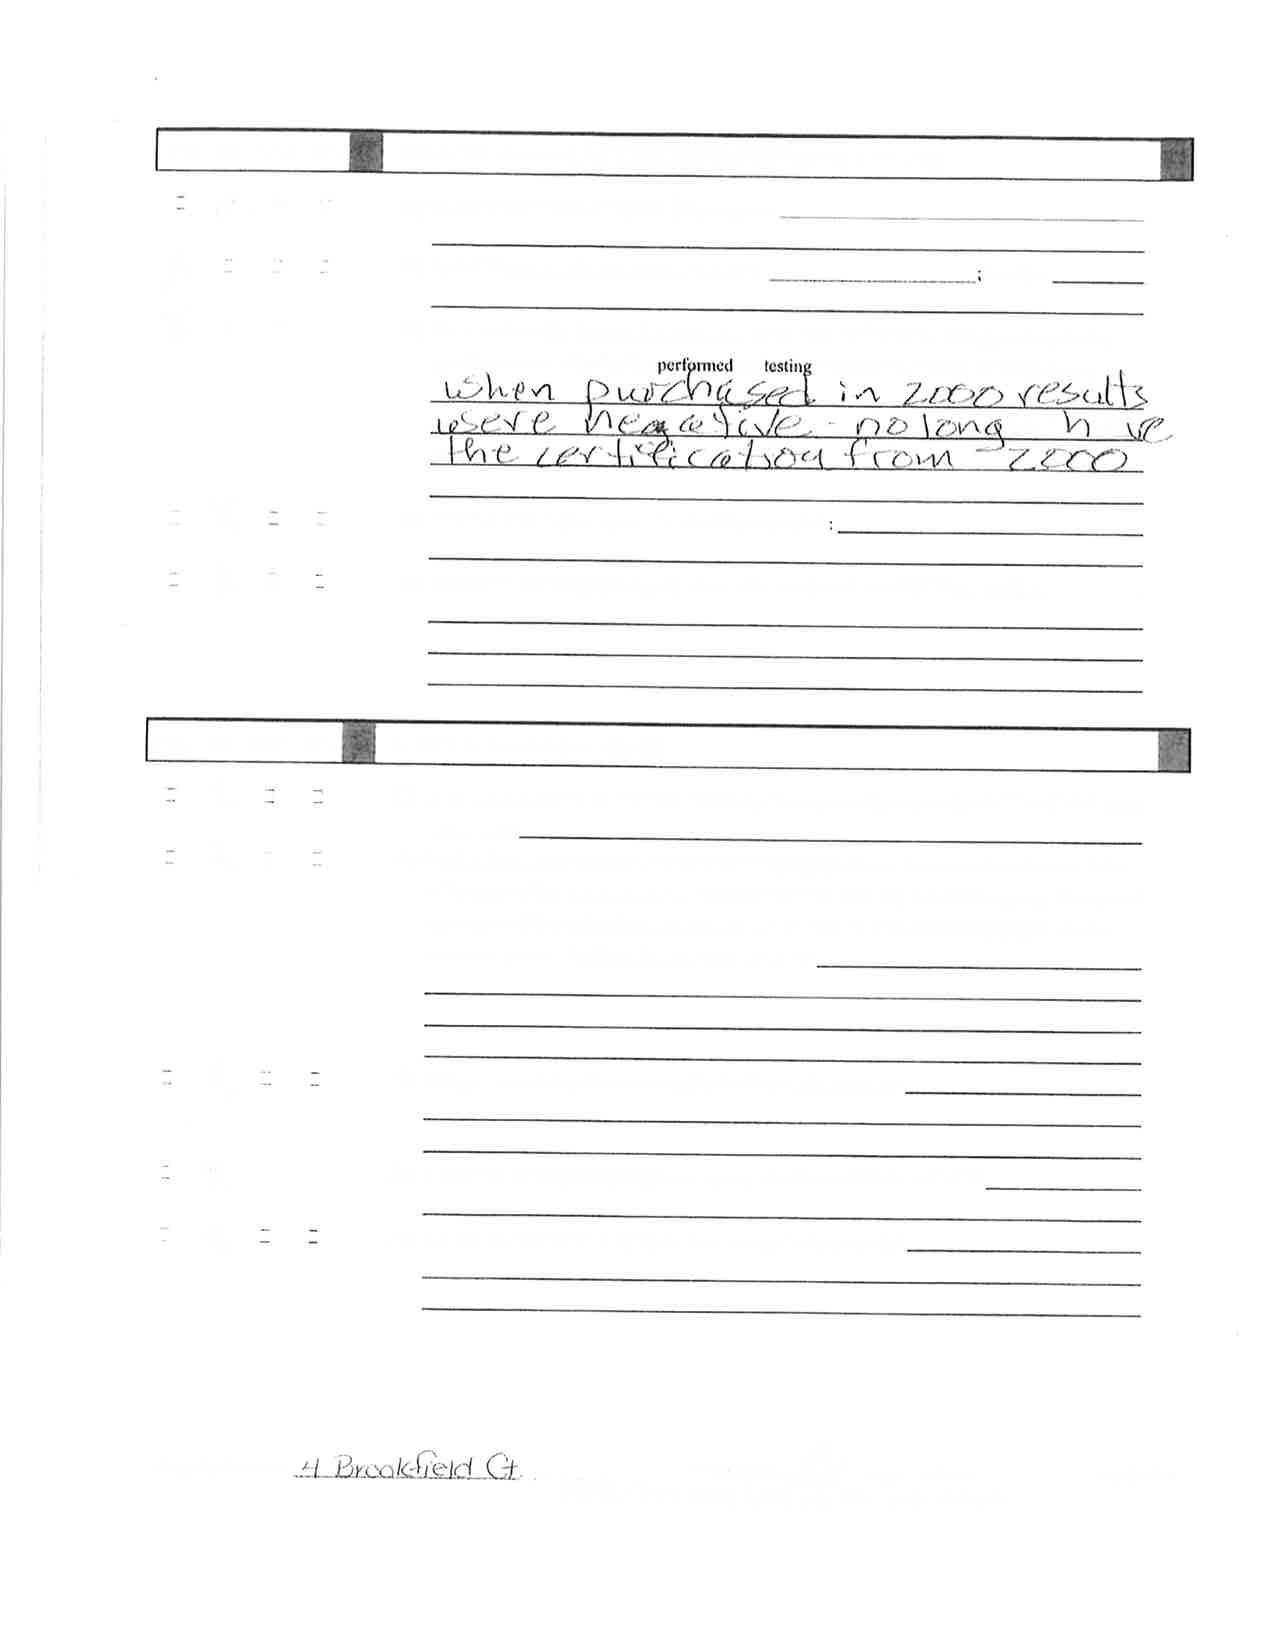 performed testing
when purchased in 2000 results
were negative - no long h ve
the certification from 2000
4 Brookfield Ct.